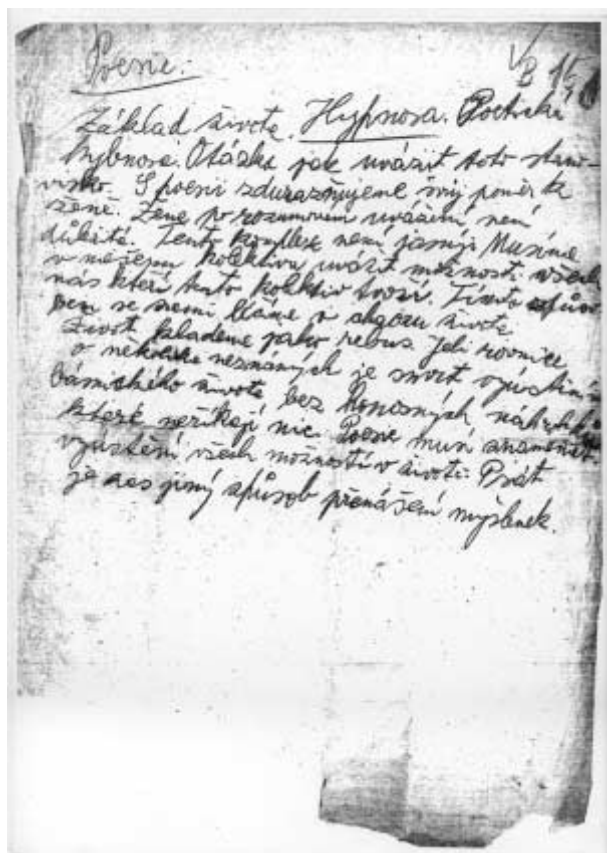 Poesie.
VB 15
Základ života. Hypnosa. Poetická
hybnosa. Otázka jak uvážit toto stano-
visko. S poesií zdůrazňujeme svůj poměr k
ženě. Žene po rozumovém uvážení není
důležité. Tento komplex není jasný. Musíme
v našejem kolektivu uvážit možnosti všech
nás kteří tento kolektiv tvoří. Tímto způso
bem se sami
život klademe jako rebus. Jeli rovnice
o několika neznámých je smrt vyústění
básnického života bez honosných
které neříkají nic. Poesie musí znamenat
vyústění všech možností v životě. Psát
je zas jiný způsob přenášení myšlenek.